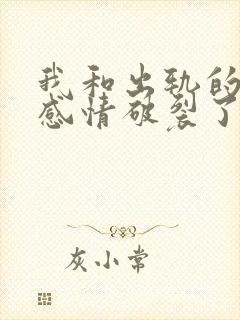 我和出轨的
感情破裂了
灰小常